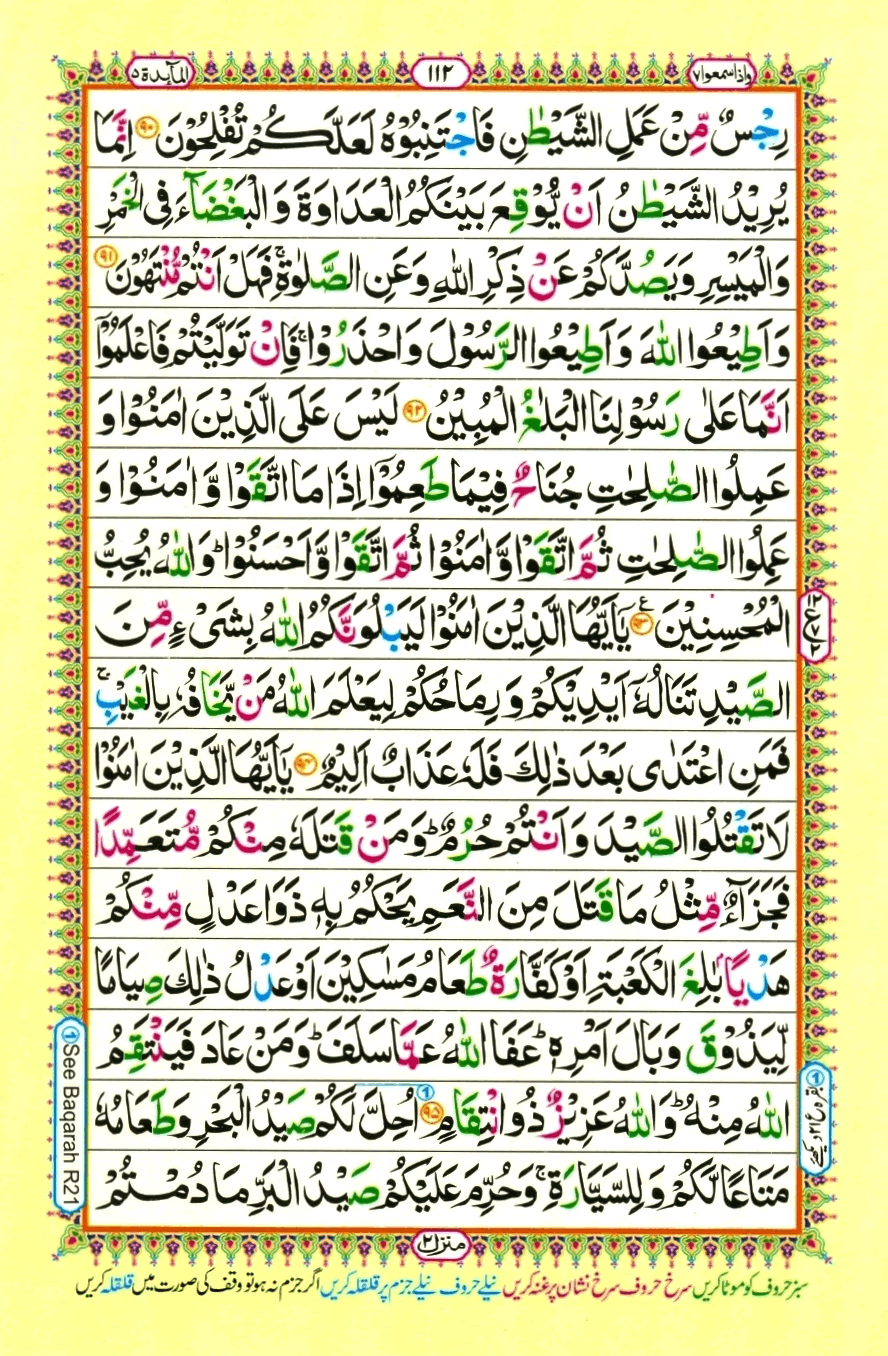 المآئدة ۵
۱۱۲
واذاسمعوا ۷
رِجْسٌ مِّنْ عَمَلِ الشَّيْطٰنِ فَاجْتَنِبُوْهُ لَعَلَّكُمْ تُفْلِحُوْنَ ۹۰ اِنَّمَا
يُرِيْدُ الشَّيْطٰنُ اَنْ يُّوْقِعَ بَيْنَكُمُ الْعَدَاوَةَ وَ الْبَغْضَآءَ فِى الْخَمْرِ
وَالْمَيْسِرِ وَيَصُدَّكُمْ عَنْ ذِكْرِ اللّٰهِ وَعَنِ الصَّلٰوةِ ۚ فَهَلْ اَنْتُمْ مُّنْتَهُوْنَ ۹۱
وَاَطِيْعُوا اللّٰهَ وَاَطِيْعُوا الرَّسُوْلَ وَاحْذَرُوْا ۚ فَاِنْ تَوَلَّيْتُمْ فَاعْلَمُوْٓا
اَنَّمَا عَلٰى رَسُوْلِنَا الْبَلٰغُ الْمُبِيْنُ ۹۲ لَيْسَ عَلَى الَّذِيْنَ اٰمَنُوْا وَ
عَمِلُوا الصّٰلِحٰتِ جُنَاحٌ فِيْمَا طَعِمُوْٓا اِذَا مَا اتَّقَوْا وَّ اٰمَنُوْا وَ
عَمِلُوا الصّٰلِحٰتِ ثُمَّ اتَّقَوْا وَّاٰمَنُوْا ثُمَّ اتَّقَوْا وَّاَحْسَنُوْا ؕ وَاللّٰهُ يُحِبُّ
الْمُحْسِنِيْنَ ۹۳ ع يٰٓاَيُّهَا الَّذِيْنَ اٰمَنُوْا لَيَبْلُوَنَّكُمُ اللّٰهُ بِشَىْءٍ مِّنَ
الصَّيْدِ تَنَالُهٗٓ اَيْدِيْكُمْ وَ رِمَاحُكُمْ لِيَعْلَمَ اللّٰهُ مَنْ يَّخَافُهٗ بِالْغَيْبِ ۚ
فَمَنِ اعْتَدٰى بَعْدَ ذٰلِكَ فَلَهٗ عَذَابٌ اَلِيْمٌ ۹۴ يٰٓاَيُّهَا الَّذِيْنَ اٰمَنُوْا
لَا تَقْتُلُوا الصَّيْدَ وَاَنْتُمْ حُرُمٌ ؕ وَمَنْ قَتَلَهٗ مِنْكُمْ مُّتَعَمِّدًا
فَجَزَآءٌ مِّثْلُ مَا قَتَلَ مِنَ النَّعَمِ يَحْكُمُ بِهٖ ذَوَا عَدْلٍ مِّنْكُمْ
هَدْيًۢا بٰلِغَ الْكَعْبَةِ اَوْ كَفَّارَةٌ طَعَامُ مَسٰكِيْنَ اَوْ عَدْلُ ذٰلِكَ صِيَامًا
لِّيَذُوْقَ وَبَالَ اَمْرِهٖ ؕ عَفَا اللّٰهُ عَمَّا سَلَفَ ؕ وَمَنْ عَادَ فَيَنْتَقِمُ
اللّٰهُ مِنْهُ ؕ وَاللّٰهُ عَزِيْزٌ ذُو انْتِقَامٍ ۹۵ ① اُحِلَّ لَكُمْ صَيْدُ الْبَحْرِ وَطَعَامُهٗ
مَتَاعًا لَّكُمْ وَ لِلسَّيَّارَةِ ۚ وَحُرِّمَ عَلَيْكُمْ صَيْدُ الْبَرِّ مَا دُمْتُمْ
① See Baqarah R21
منزل ۲
سبز حروف کو موٹا کریں سرخ حروف سرخ نشان پر غنہ کریں نیلے حروف نیلے جزم پر قلقلہ کریں اگر جزم نہ ہو تو وقف کی صورت میں قلقلہ کریں